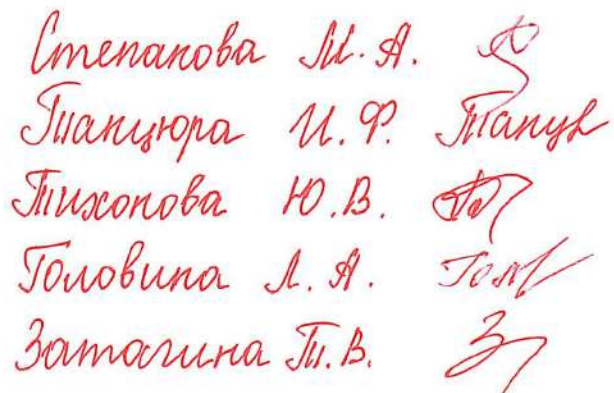 Степанова М. А.
Танцюра И. Ф. Танцу
Тихонова Ю. В.
Головина Л. А. Голв
Затагина Т. В. З